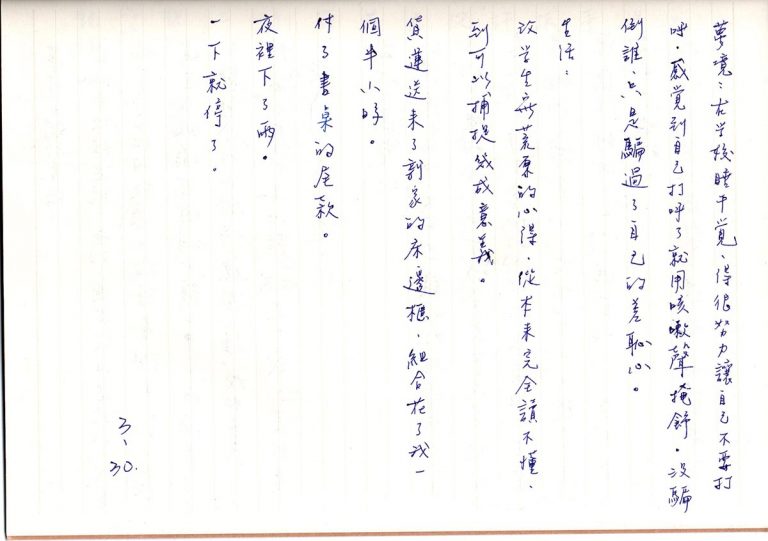 夢境：在学校睡午覚、得很努力讓自己不要打
呼。感覚到自己打呼了就用咳嗽聲掩飾。沒騙
倒誰、只是騙過了自己的羞恥心。
生活：
改学生寫荒原的心得、從本来完全讀不懂、
到可以捕捉幾成意義。
貨運送来了新家的床邊櫃、組合花了我一
個半小時。
付了書桌的尾款。
夜裡下了雨。
一下就停了。
3、30.